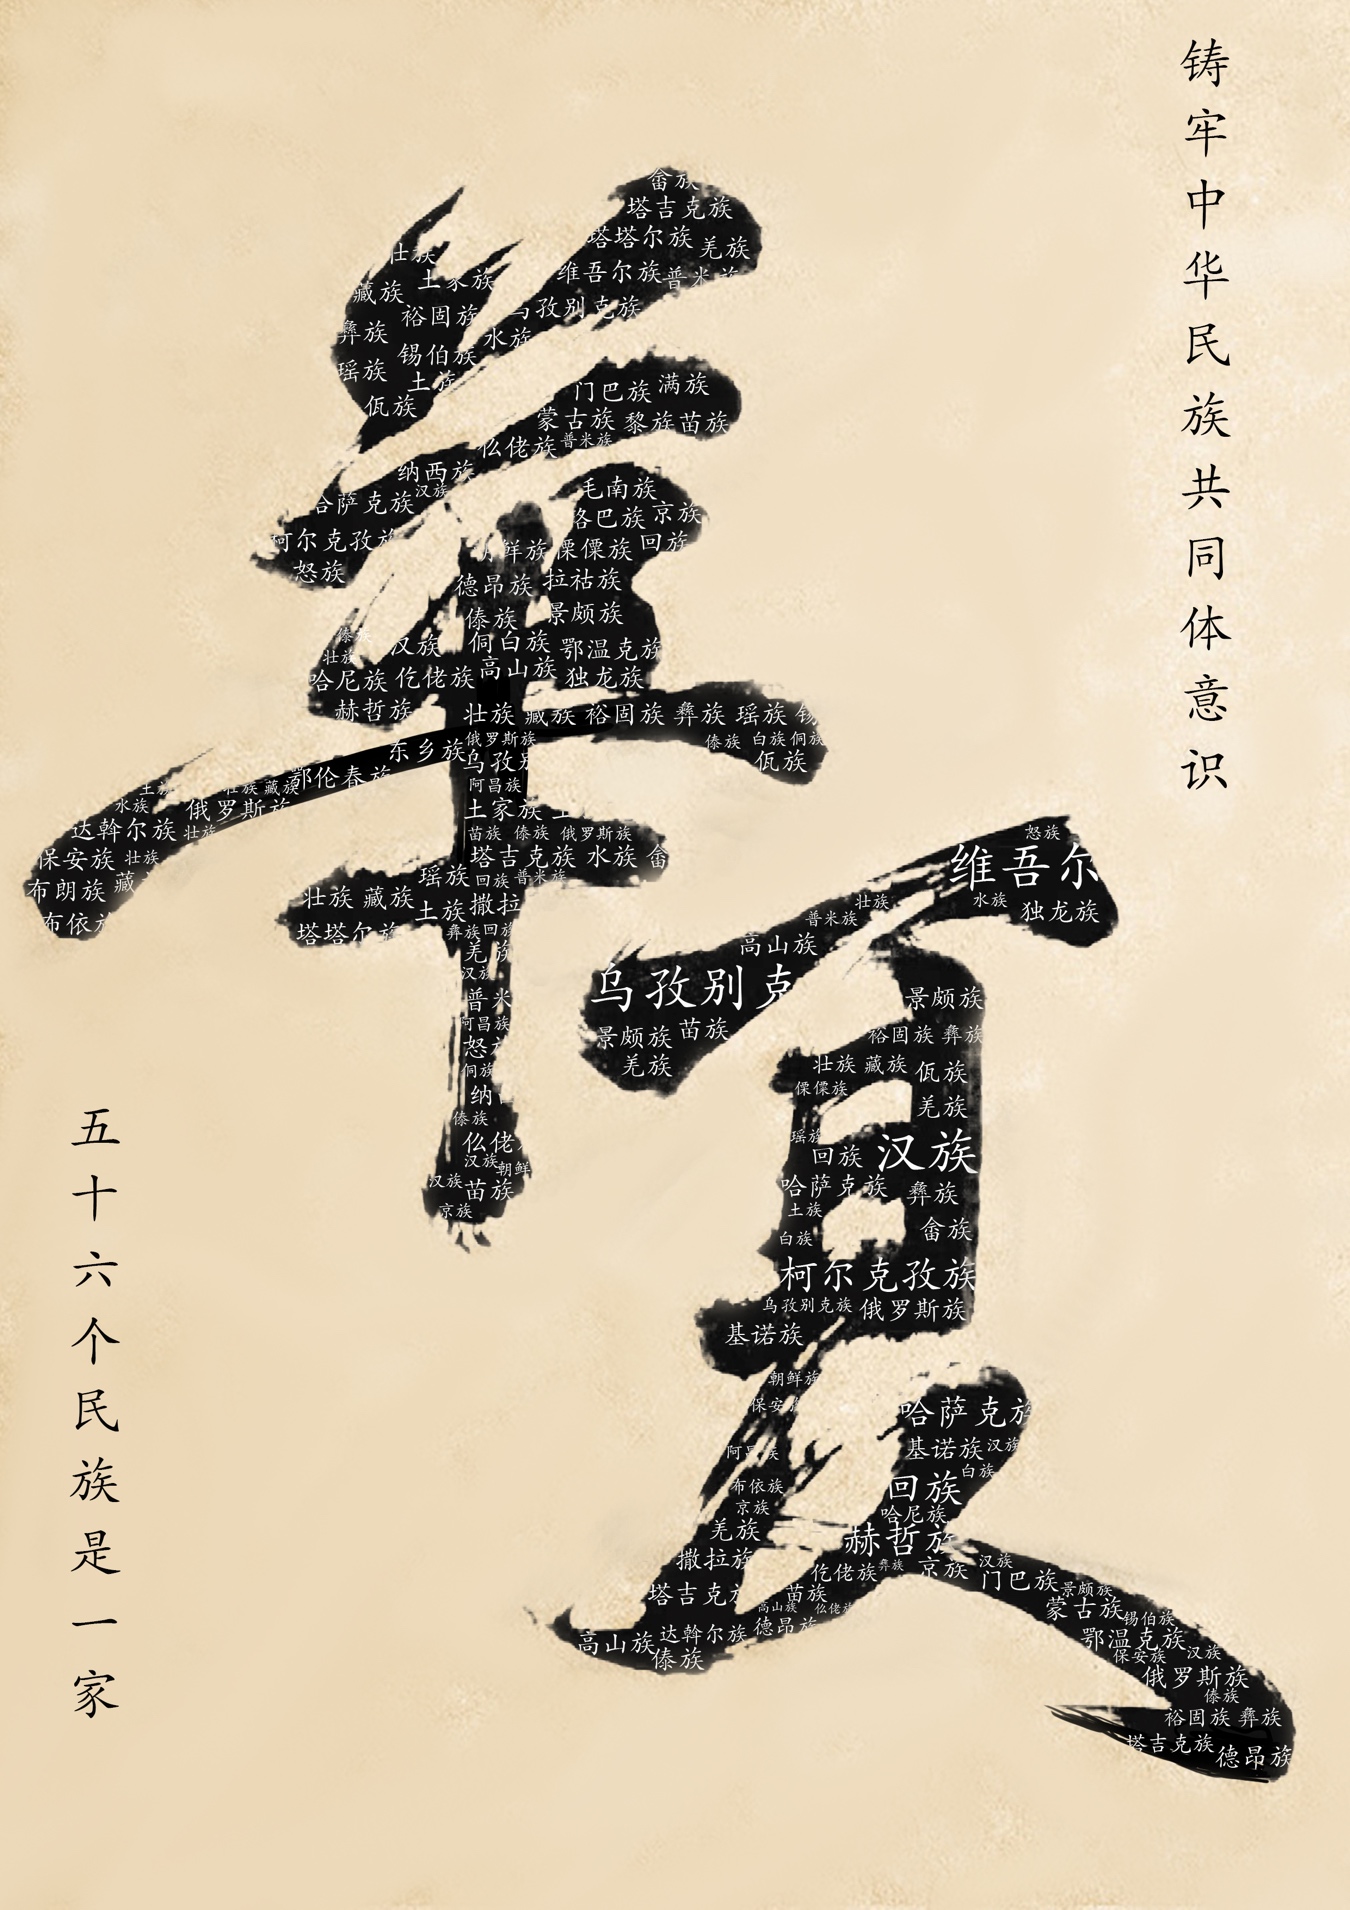 铸牢中华民族共同体意识
華夏
畲族
塔吉克族
塔塔尔族 羌族
维吾尔族 普米族
乌孜别克族
壮族
土家族
藏族
裕固族
水族
彝族
锡伯族
瑶族
土族
佤族
门巴族 满族
蒙古族 黎族 苗族
仫佬族 普米族
纳西族
哈萨克族 汉族
毛南族
珞巴族 京族
柯尔克孜族
朝鲜族 傈僳族 回族
怒族
德昂族 拉祜族
傣族 景颇族
傣族
汉族 侗白族 鄂温克族
壮族
哈尼族 仡佬族 高山族 独龙族
赫哲族
壮族 藏族 裕固族 彝族 瑶族 锡
俄罗斯族 傣族 白族 侗族
东乡族 乌孜别 佤族
鄂伦春族 阿昌族
土族 壮族 藏族
水族 俄罗斯族 土家族
达斡尔族 壮族 苗族 傣族 俄罗斯族
保安族 壮族 塔吉克族 水族 畲
布朗族 藏 瑶族 回族 普米族
壮族 藏族 土族 撒拉
布依族
塔塔尔族 彝族 回族
羌族
汉族
普米
阿昌族
怒族
侗族
纳
傣族
仫佬
汉族 朝鲜
汉族 苗族
京族
怒族
维吾尔
水族 独龙族
普米族 壮族
高山族
乌孜别克
景颇族 苗族
羌族
景颇族
裕固族 彝族
壮族 藏族 佤族
傈僳族
羌族
瑶族
回族 汉族
哈萨克族 彝族
土族
白族 畲族
柯尔克孜族
乌孜别克族 俄罗斯族
基诺族
朝鲜族
保安族 哈萨克族
阿昌族 基诺族 汉族
白族
布依族 回族
京族 哈尼族
羌族 赫哲族
撒拉族 仡佬族 彝族 京族 汉族
门巴族 景颇族
塔吉克族 苗族
高山族 仫佬族 蒙古族 锡伯族
高山族 达斡尔族 德昂族 鄂温克族
傣族 保安族 汉族
俄罗斯族
傣族
裕固族 彝族
塔吉克族 德昂族
五十六个民族是一家